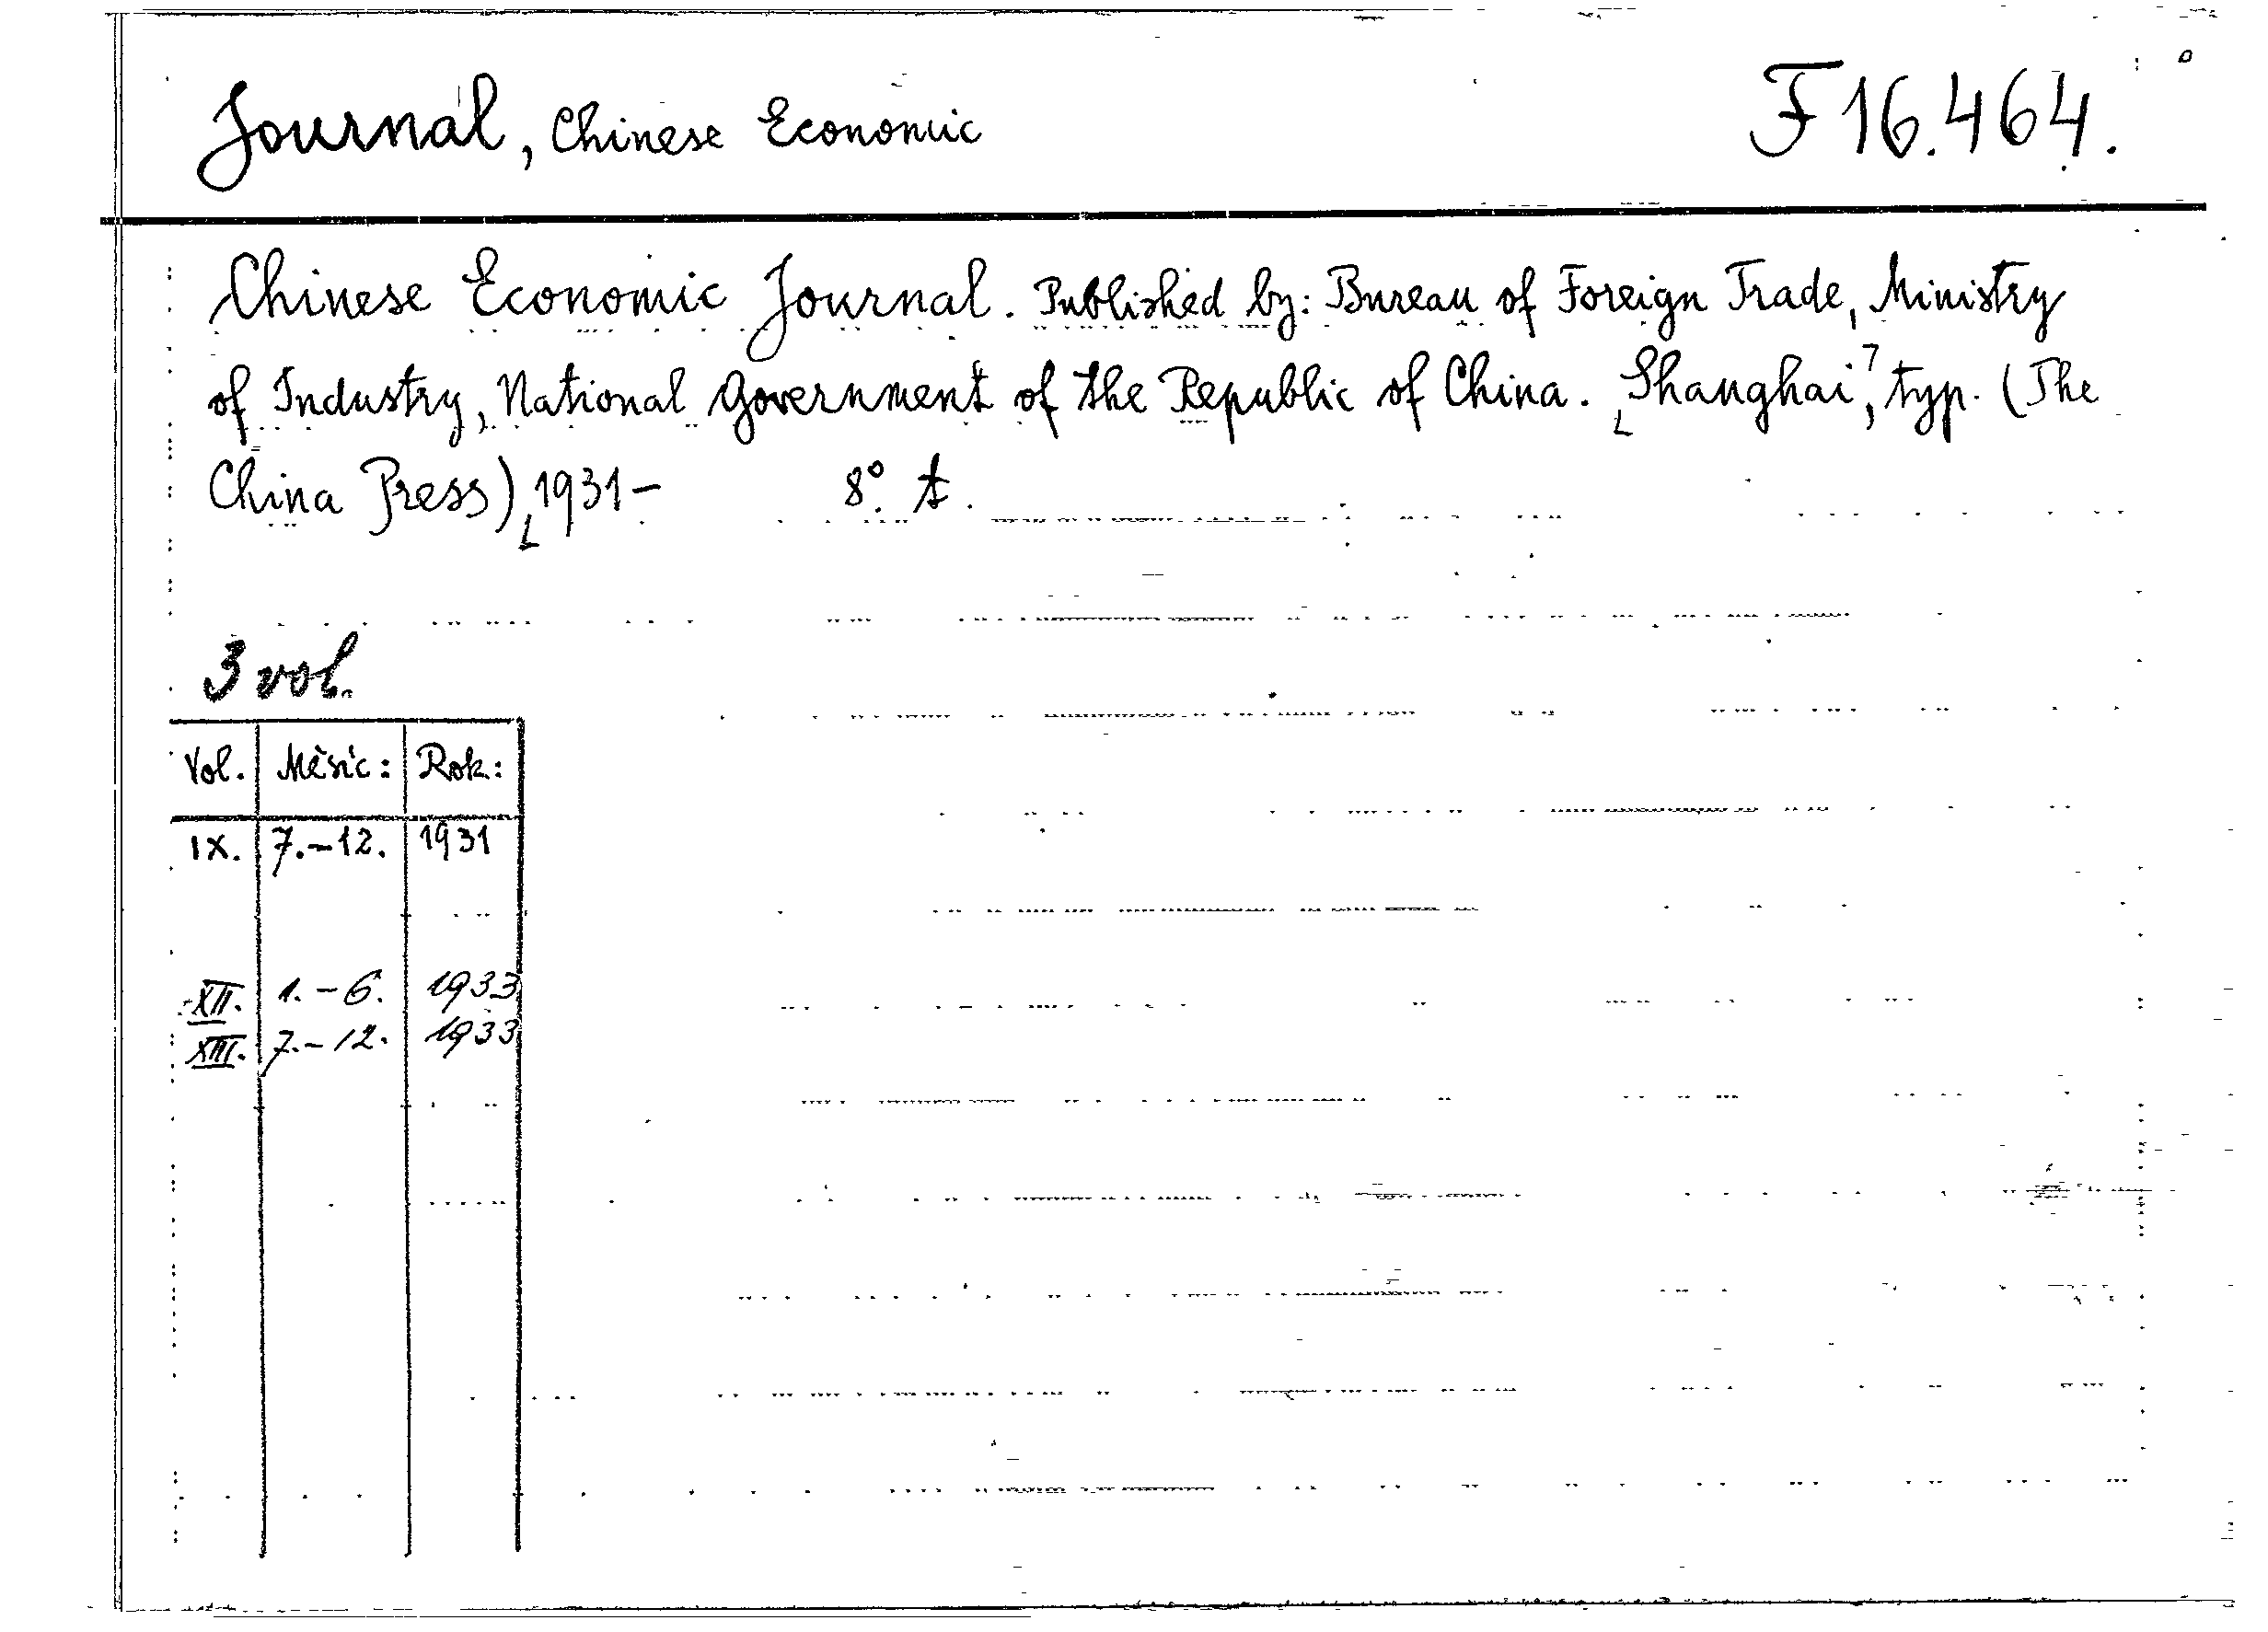 Journal, Chinese Economic F 16.464.
Chinese Economic Journal. Published by: Bureau of Foreign Trade, Ministry
of Industry, National Government of the Republic of China. [Shanghai], typ. (The
China Press) [1931- 8°. t.
3 vol.
Vol. Měsíc: Rok:
IX. 7.-12. 1931
XII. 1.-6. 1933
XIII. 7.-12. 1933